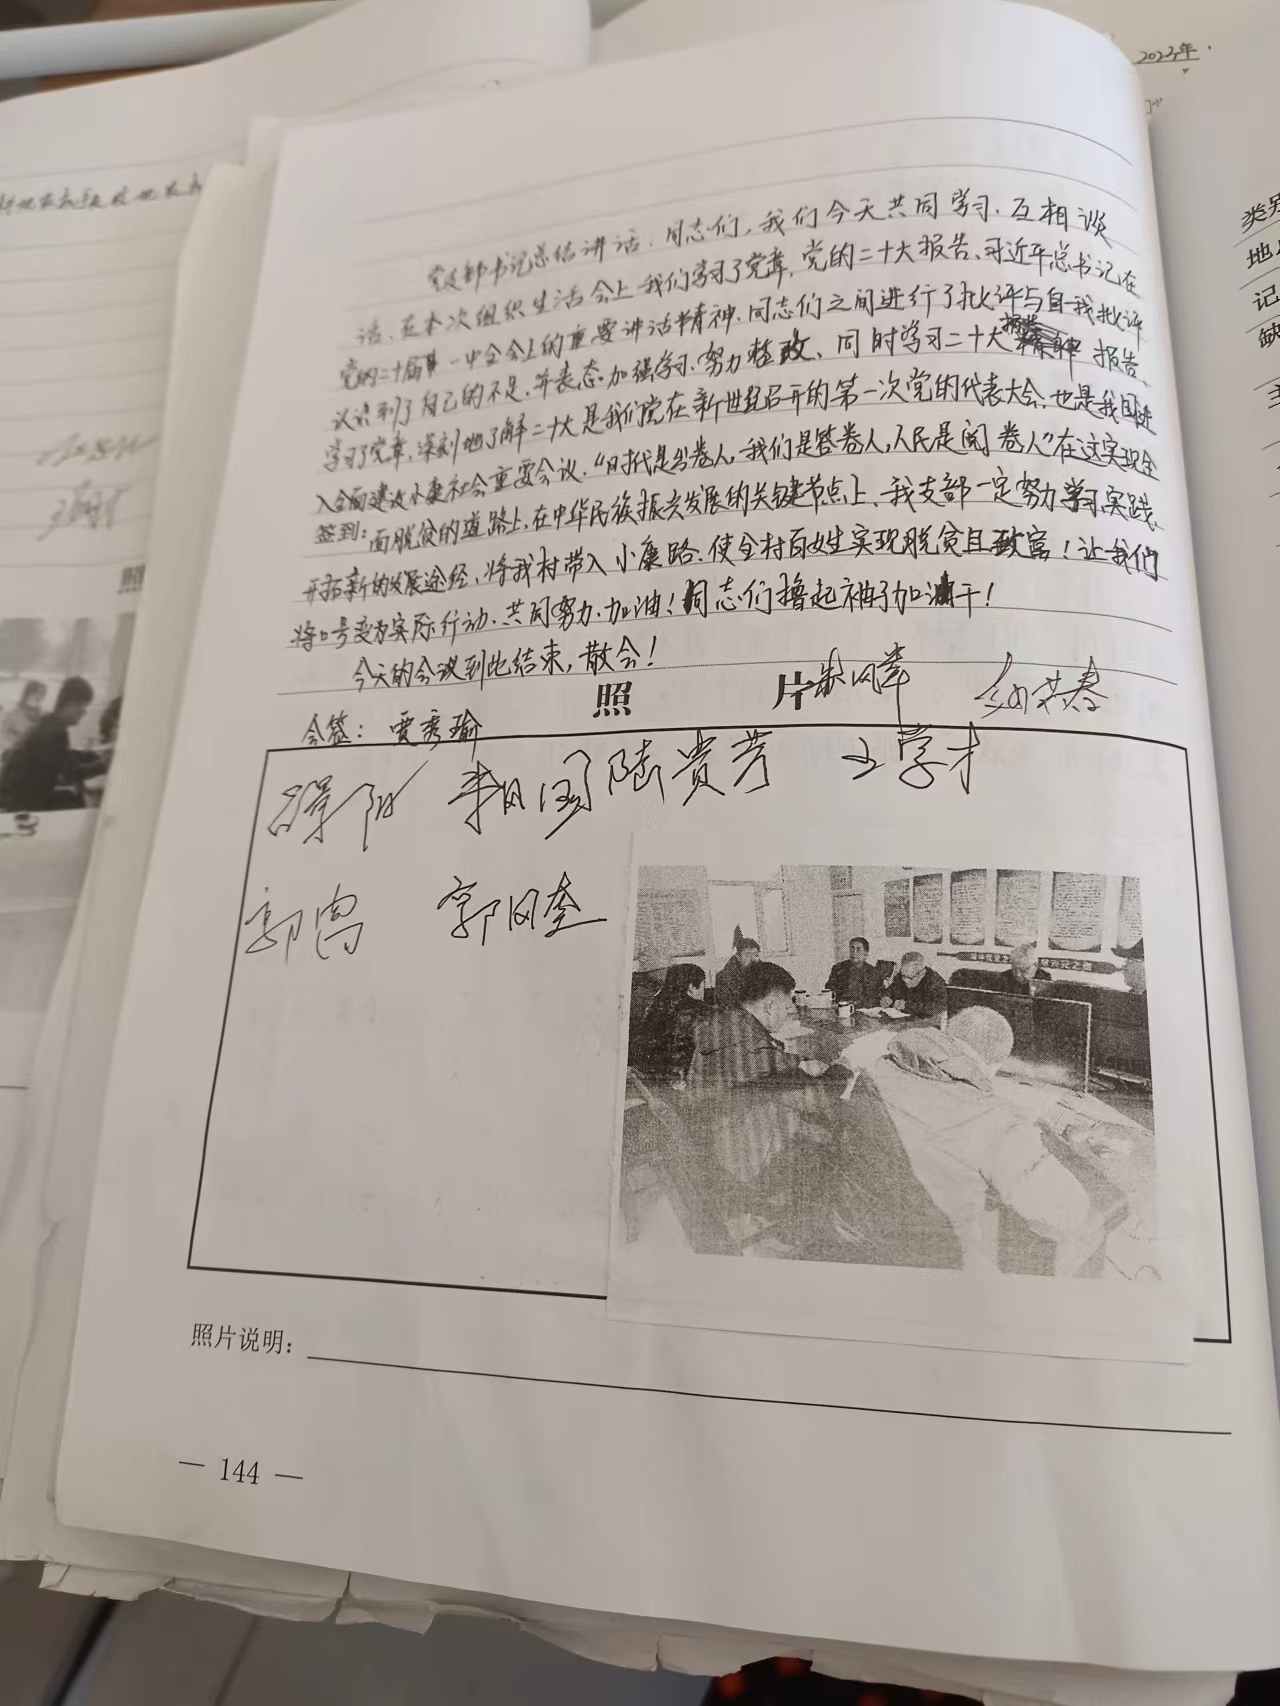 2023年
党支部书记总结讲话：同志们，我们今天共同学习、互相谈
话、在本次组织生活会上我们学习了党章，党的二十大报告、习近平总书记在
党的二十届一中全会上的重要讲话精神，同志们之间进行了批评与自我批评
认识到了自己的不足，并表态加强学习、努力整改、同时学习二十大报告、
学习了党章，深刻地了解二十大是我们党在新世纪召开的第一次党的代表大会，也是我国进
入全面建设小康社会重要会议，“时代是出卷人，我们是答卷人，人民是阅卷人”在这实现全
签到：面脱贫的道路上，在中华民族振兴发展的关键节点上、我支部一定努力学习实践、
开拓新的发展途经，将我村带入小康路、使全村百姓实现脱贫且致富！让我们
将口号变为实际行动、共同努力、加油！同志们撸起袖子加油干！
今天的会议到此结束，散会！
照 片
会签：贾秀瑜
陆贵芳 王学才
郭凤奎
照片说明：
— 144 —
类别
地点
记
缺
主
照